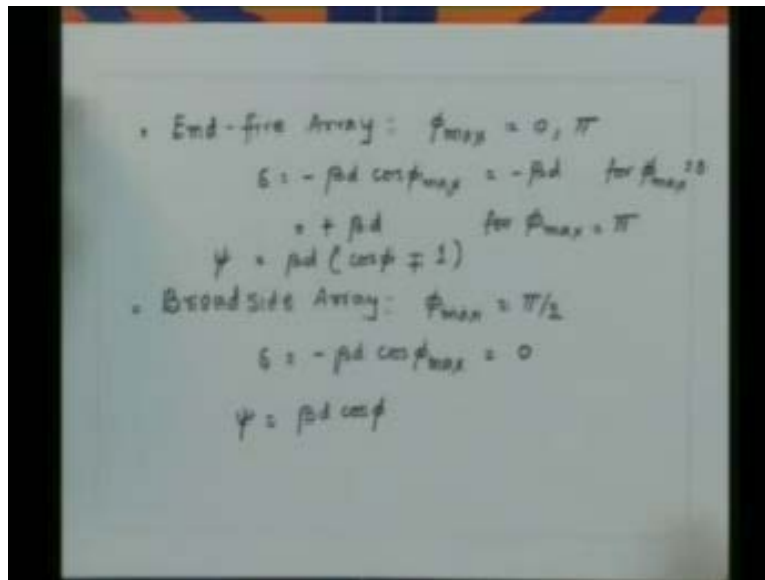 • End-fire Array: ϕmax = 0, π
δ = - βd cosϕmax = - βd for ϕmax=0
= + βd for ϕmax = π
ψ = βd (cosϕ ∓ 1)
• Broadside Array: ϕmax = π/2
δ = - βd cosϕmax = 0
ψ = βd cosϕ